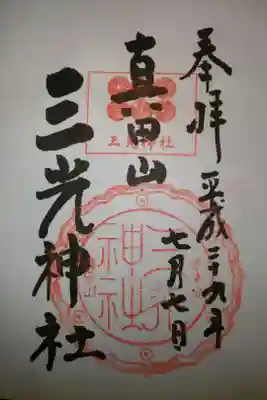 奉拝
平成二十九年
七月七日
真田山
三光神社
三光神社
三光神社